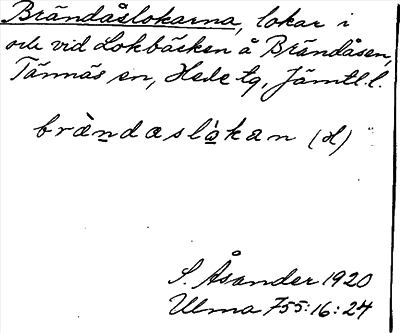 Brändåslokarna, lokar i
och vid Lokbäcken å Brändåsen,
Tännäs sn, Hede tg, Jämtl. l.
brändaslokan (H)
S. Åsander 1920
Ulma 755:16:24